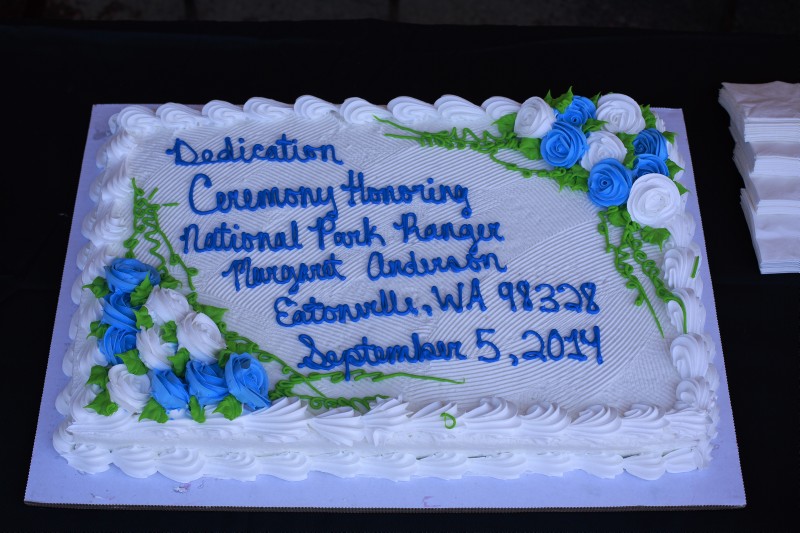 Dedication
Ceremony Honoring
National Park Ranger
Margaret Anderson
Eatonville, WA 98328
September 5, 2014